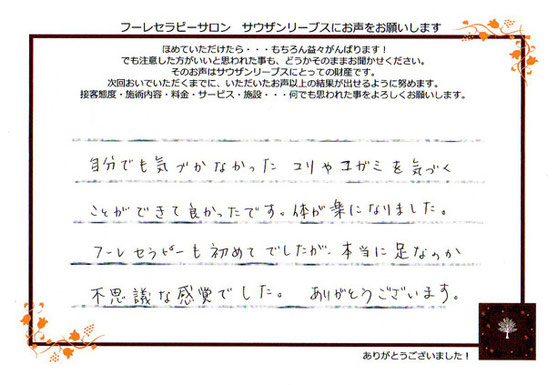 フーレセラピーサロン　サウザンリーブスにお声をお願いします
ほめていただけたら・・・もちろん益々がんばります！
でも注意した方がいいと思われた事も、どうかそのままお聞かせください。
そのお声はサウザンリーブスにとっての財産です。
次回おいでいただくまでに、いただいたお声以上の結果が出せるように努めます。
接客態度・施術内容・料金・サービス・施設・・・何でも思われた事をよろしくお願いします。
自分でも気づかなかった コリやユガミを気づく
ことができて良かったです。体が楽になりました。
フーレセラピーも初めてでしたが、本当に足なのか
不思議な感覚でした。 ありがとうございます。
ありがとうございました！